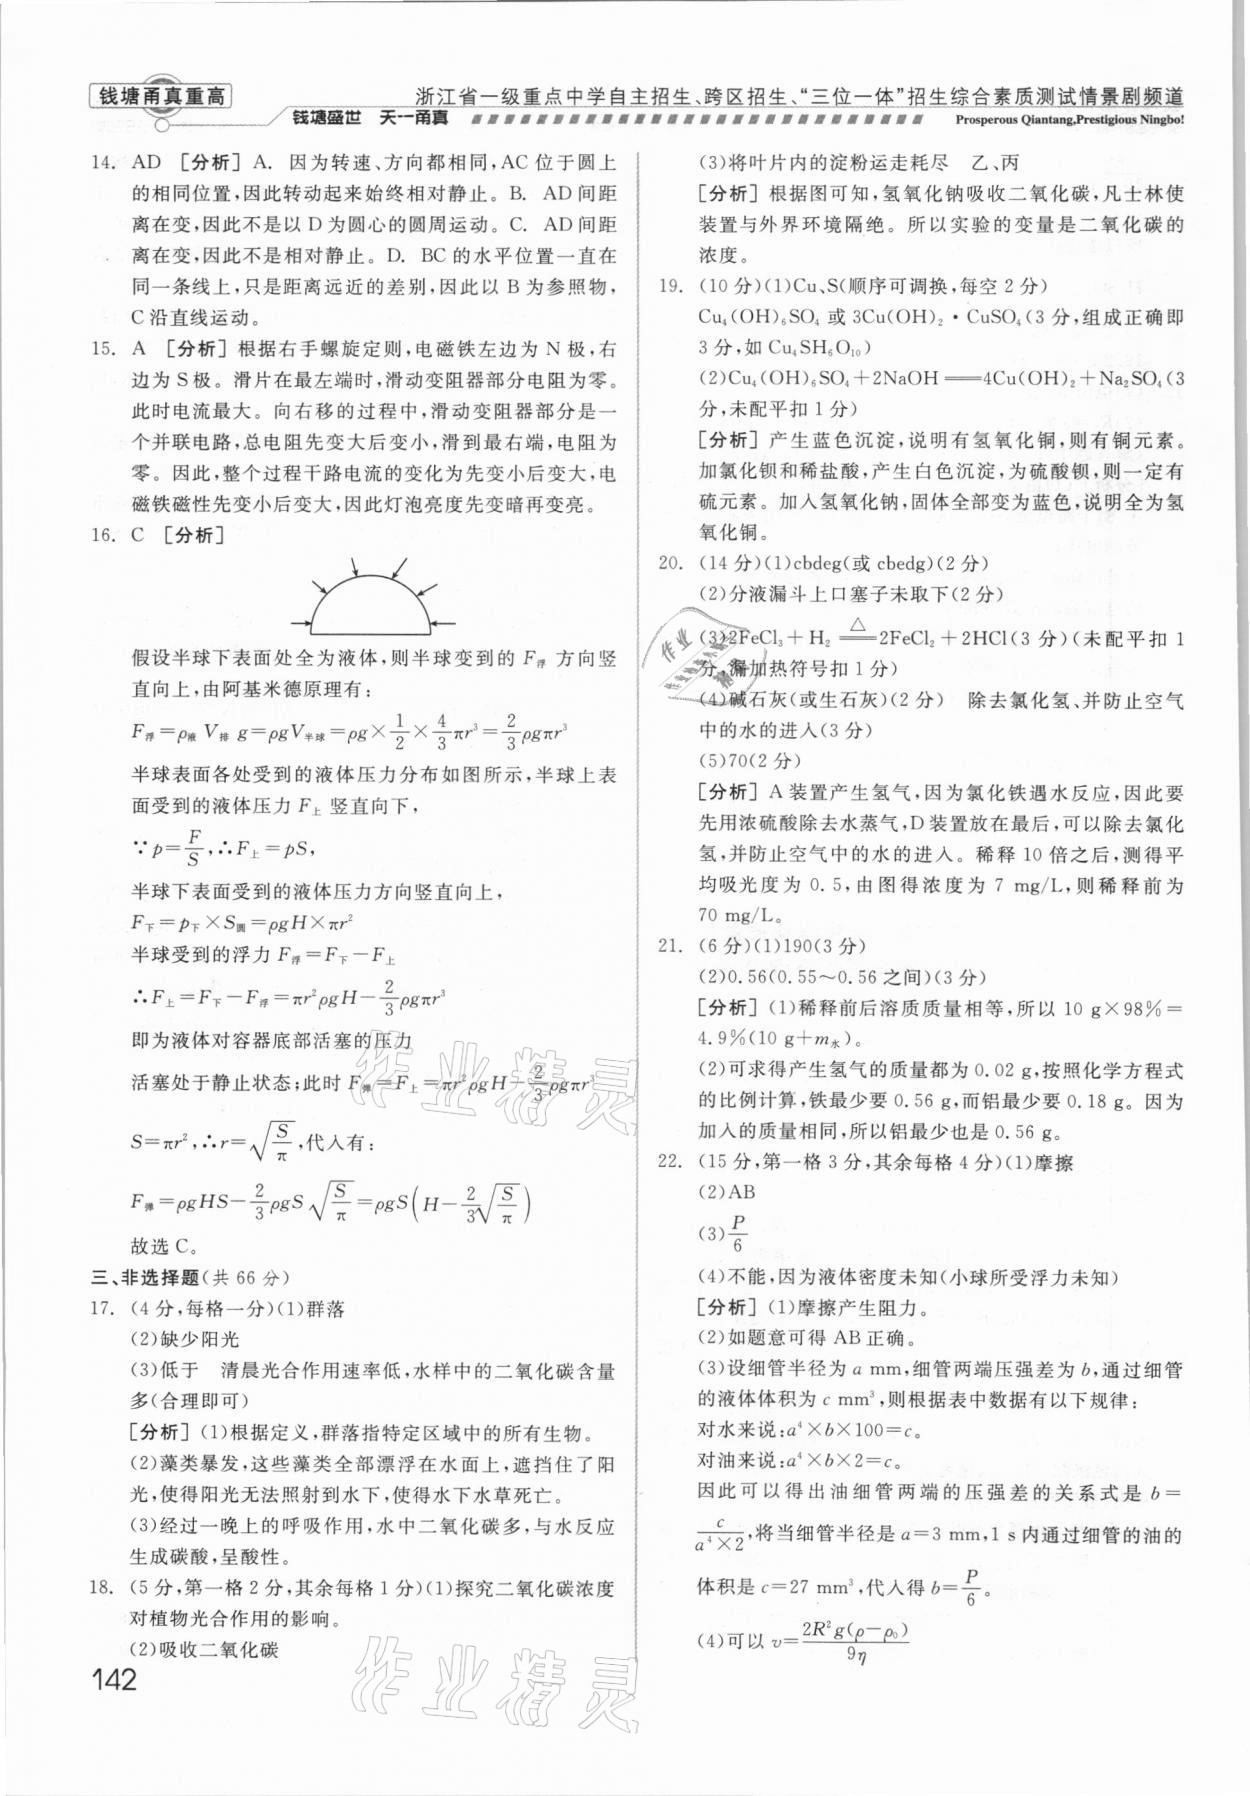 钱塘甬真重高
浙江省一级重点中学自主招生、跨区招生、“三位一体”招生综合素质测试情景剧频道
钱塘盛世 天一甬真
Prosperous Qiantang,Prestigious Ningbo!
14. AD [分析] A. 因为转速、方向都相同,AC位于圆上
的相同位置,因此转动起来始终相对静止。B. AD间距
离在变,因此不是以D为圆心的圆周运动。C. AD间距
离在变,因此不是相对静止。D. BC的水平位置一直在
同一条线上,只是距离远近的差别,因此以B为参照物,
C沿直线运动。
15. A [分析] 根据右手螺旋定则,电磁铁左边为N极,右
边为S极。滑片在最左端时,滑动变阻器部分电阻为零。
此时电流最大。向右移的过程中,滑动变阻器部分是一
个并联电路,总电阻先变大后变小,滑到最右端,电阻为
零。因此,整个过程干路电流的变化为先变小后变大,电
磁铁磁性先变小后变大,因此灯泡亮度先变暗再变亮。
16. C [分析]
假设半球下表面处全为液体,则半球变到的F浮方向竖
直向上,由阿基米德原理有:
F浮=ρ液V排g=ρgV半球=ρg×1/2×4/3πr³=2/3ρgπr³
半球表面各处受到的液体压力分布如图所示,半球上表
面受到的液体压力F上竖直向下,
∵p=F/S,∴F上=pS,
半球下表面受到的液体压力方向竖直向上,
F下=p下×S圆=ρgH×πr²
半球受到的浮力F浮=F下-F上
∴F上=F下-F浮=πr²ρgH-2/3ρgπr³
即为液体对容器底部活塞的压力
活塞处于静止状态;此时F弹=F上=πr²ρgH-2/3ρgπr³
S=πr²,∴r=√(S/π),代入有:
F弹=ρgHS-2/3ρgS√(S/π)=ρgS(H-2/3√(S/π))
故选C。
三、非选择题(共66分)
17. (4分,每格一分)(1)群落
(2)缺少阳光
(3)低于 清晨光合作用速率低,水样中的二氧化碳含量
多(合理即可)
[分析] (1)根据定义,群落指特定区域中的所有生物。
(2)藻类暴发,这些藻类全部漂浮在水面上,遮挡住了阳
光,使得阳光无法照射到水下,使得水下水草死亡。
(3)经过一晚上的呼吸作用,水中二氧化碳多,与水反应
生成碳酸,呈酸性。
18. (5分,第一格2分,其余每格1分)(1)探究二氧化碳浓度
对植物光合作用的影响。
(2)吸收二氧化碳
142
(3)将叶片内的淀粉运走耗尽 乙、丙
[分析] 根据图可知,氢氧化钠吸收二氧化碳,凡士林使
装置与外界环境隔绝。所以实验的变量是二氧化碳的
浓度。
19. (10分)(1)Cu、S(顺序可调换,每空2分)
Cu₄(OH)₆SO₄或3Cu(OH)₂·CuSO₄(3分,组成正确即
3分,如Cu₄SH₆O₁₀)
(2)Cu₄(OH)₆SO₄+2NaOH══4Cu(OH)₂+Na₂SO₄(3
分,未配平扣1分)
[分析] 产生蓝色沉淀,说明有氢氧化铜,则有铜元素。
加氯化钡和稀盐酸,产生白色沉淀,为硫酸钡,则一定有
硫元素。加入氢氧化钠,固体全部变为蓝色,说明全为氢
氧化铜。
20. (14分)(1)cbdeg(或cbedg)(2分)
(2)分液漏斗上口塞子未取下(2分)
(3)2FeCl₃+H₂ ══△ 2FeCl₂+2HCl(3分)(未配平扣1
分,漏加热符号扣1分)
(4)碱石灰(或生石灰)(2分) 除去氯化氢,并防止空气
中的水的进入(3分)
(5)70(2分)
[分析] A装置产生氢气,因为氯化铁遇水反应,因此要
先用浓硫酸除去水蒸气,D装置放在最后,可以除去氯化
氢,并防止空气中的水的进入。稀释10倍之后,测得平
均吸光度为0.5,由图得浓度为7 mg/L,则稀释前为
70 mg/L。
21. (6分)(1)190(3分)
(2)0.56(0.55~0.56之间)(3分)
[分析] (1)稀释前后溶质质量相等,所以10 g×98%=
4.9%(10 g+m水)。
(2)可求得产生氢气的质量都为0.02 g,按照化学方程式
的比例计算,铁最少要0.56 g,而铝最少要0.18 g。因为
加入的质量相同,所以铝最少也是0.56 g。
22. (15分,第一格3分,其余每格4分)(1)摩擦
(2)AB
(3)P/6
(4)不能,因为液体密度未知(小球所受浮力未知)
[分析] (1)摩擦产生阻力。
(2)如题意可得AB正确。
(3)设细管半径为a mm,细管两端压强差为b,通过细管
的液体体积为c mm³,则根据表中数据有以下规律:
对水来说:a⁴×b×100=c。
对油来说:a⁴×b×2=c。
因此可以得出油细管两端的压强差的关系式是b=
c/(a⁴×2),将当细管半径是a=3 mm,1 s内通过细管的油的
体积是c=27 mm³,代入得b=P/6。
(4)可以v=2R²g(ρ-ρ₀)/9η
作业精灵
作业精灵
作业精灵